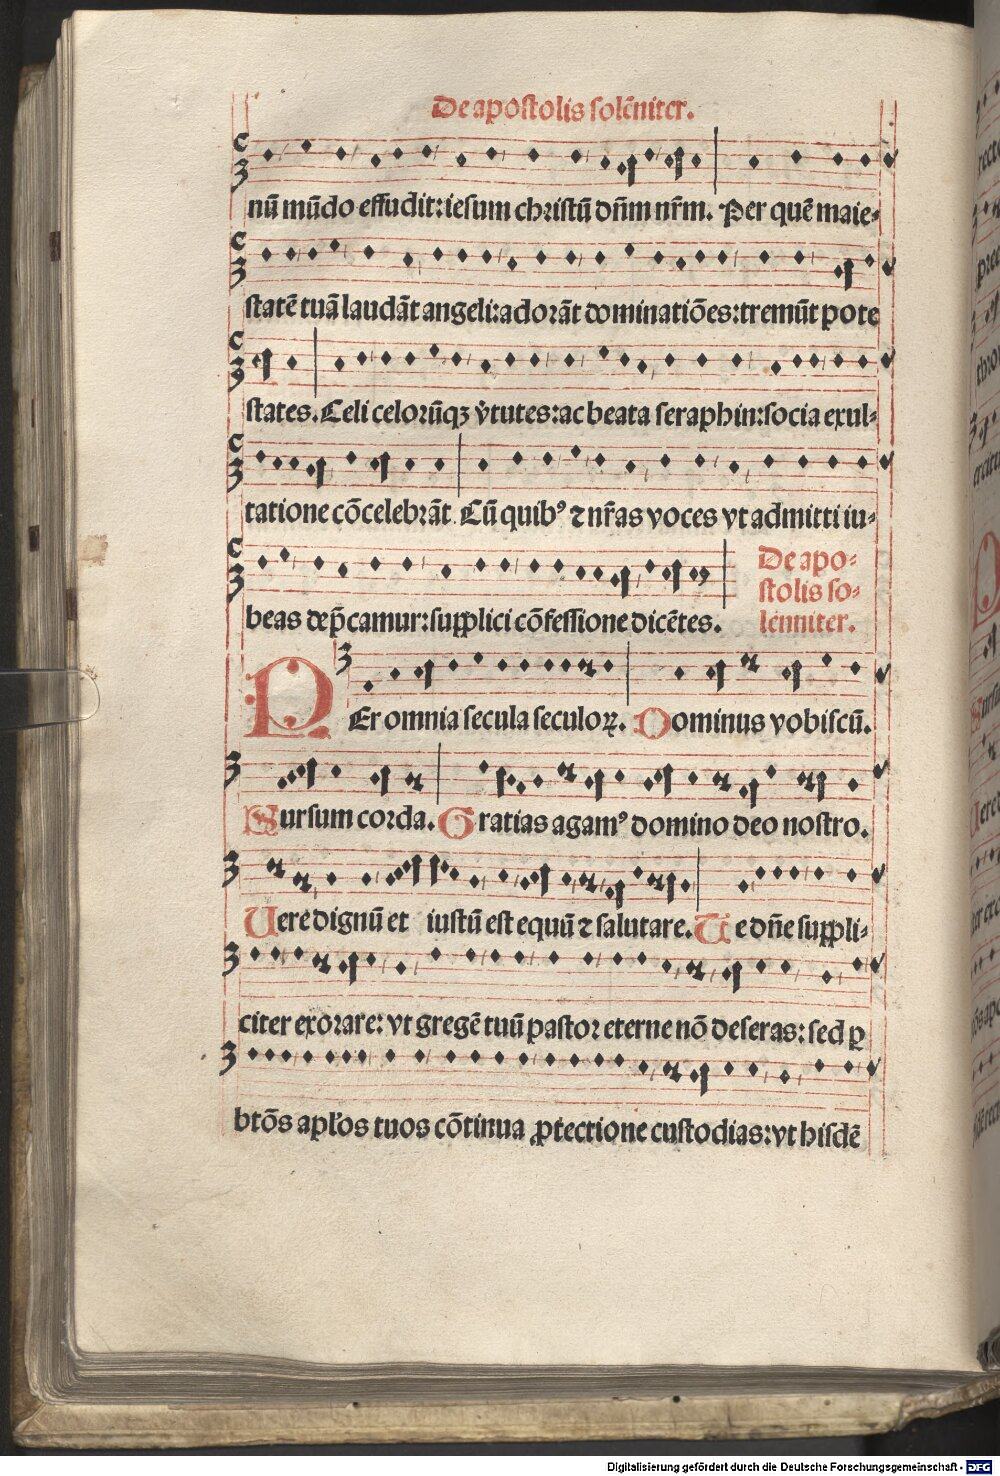 De apostolis solēniter.
nū mūdo effudit: iesum christū dn̄m nr̄m. Per quē maie-
statē tuā laudāt angeli: adorāt dominatiōes: tremūt pote
states. Celi celorūqꝫ v̄tutes: ac beata seraphin: socia exul-
tatione cōcelebrāt. Cū quibꝰ ⁊ nr̄as voces vt admitti iu-
beas dep̄camur: supplici cōfessione dicētes.
De apo-
stolis so-
lenniter.
PEr omnia secula seculoꝝ. Dominus vobiscū.
Sursum corda. Gratias agamꝰ domino deo nostro.
Uere dignū et iustū est equū ⁊ salutare. Te dn̄e suppli-
citer exorare: vt gregē tuū pastor eterne nō deseras: sed ꝑ
btōs apl'os tuos cōtinua ꝓtectione custodias: vt hisdē
Digitalisierung gefördert durch die Deutsche Forschungsgemeinschaft - DFG